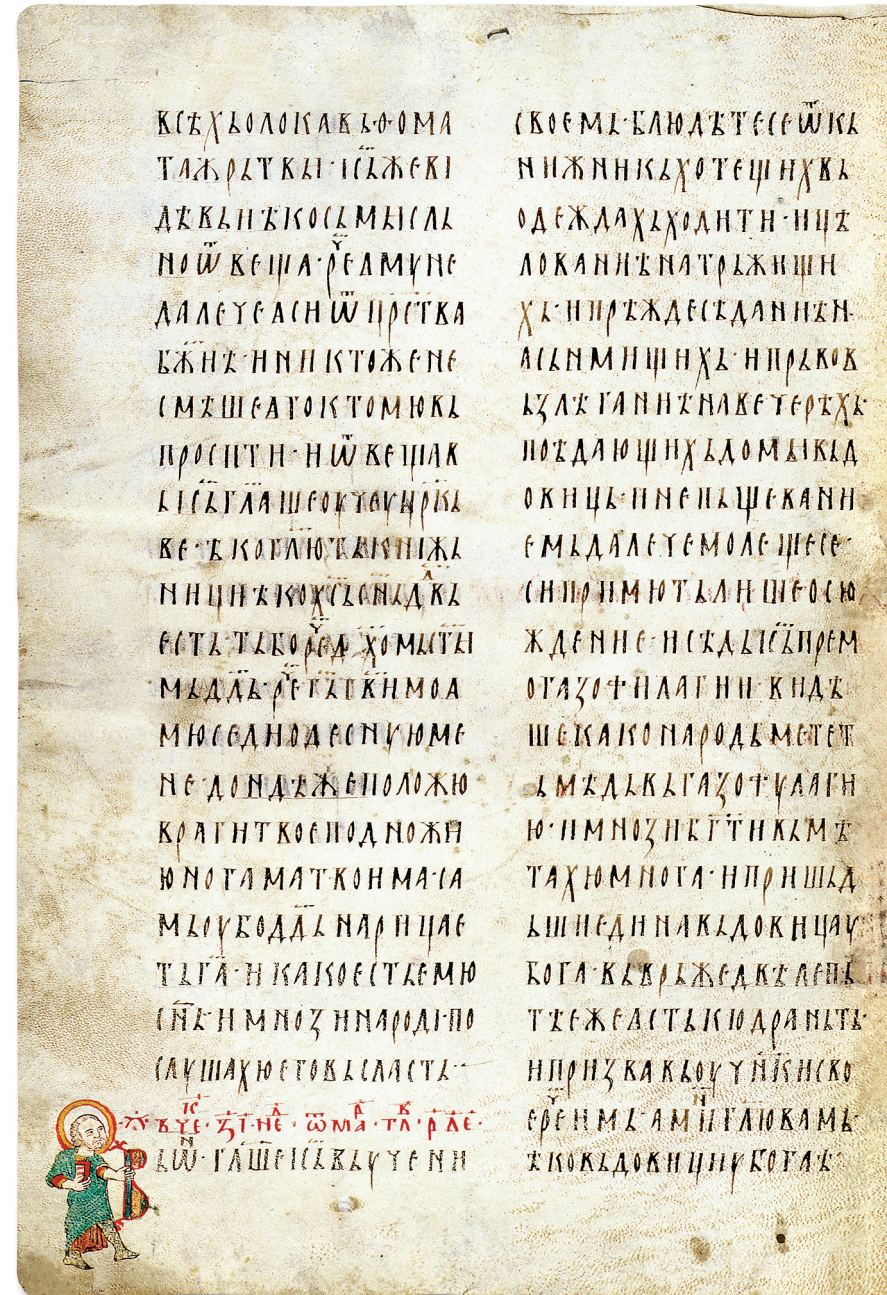 всѣхьолокавь·о·ома
тажрьтвы·іс҃ьжеви
дѣвьнѣкосьмысль
ноѿвеща·реч҃емꙋне
далечеасиѿцр҃ства
бж҃иѣ·иниктожене
смѣшеатоктомюкь
проснти·иѿвещав
ьіс҃ьгл҃ашеоучеуцр҃кь
ве·ѣкогл҃ютькнижь
ницнѣкох҃сьсн҃ьдв҃ь
есть·тьборед҃·д҃хомьсты
мьдд҃ь·реч҃гь҃гв҃имоа
мюседнодеснꙋюме
не·дондѣжеположю
врагитвоеподножи
юногаматвоима·са
мьоубодд҃ьнарицае
тьга҃·икакоестьемю
сн҃ь·имнозинароді·по
слꙋшахюеговьсласть·
вче҃·зі·не҃·ѿма҃·гл҃·рле҃·
ьѡ҃н·гл҃шеіс҃ьвьꙋчени
своемь·блюдѣтесеѿкь
нижникьхотещихвь
одеждахьходити·ицѣ
лованиѣнатрьжищи
хь·ипрѣждесѣданиѣн
асьнмищихь·ипрьвов
ьзлѣганиѣнавечерѣхь·
поѣдающихьдомывьд
овиць·инепьщевани
емьдалечемолещесе·
сипримютьлишеосю
ждение·исѣдьіс҃ьпрем
огазофилагии·видѣ
шекаконародьметет
ьмѣдьвьгазофꙋлаги
ю·имнозибг҃тивьмѣ
тахюмнога·ипришьд
ьшиединавьдовицаꙋ
бога·вьврьжедвѣлепь
тѣежеастькюдраньть·
ипризвавьоучн҃икисво
ерeч҃имь·амн҃гл҃ювамь·
ѣковьдовициꙋбогаѣ·